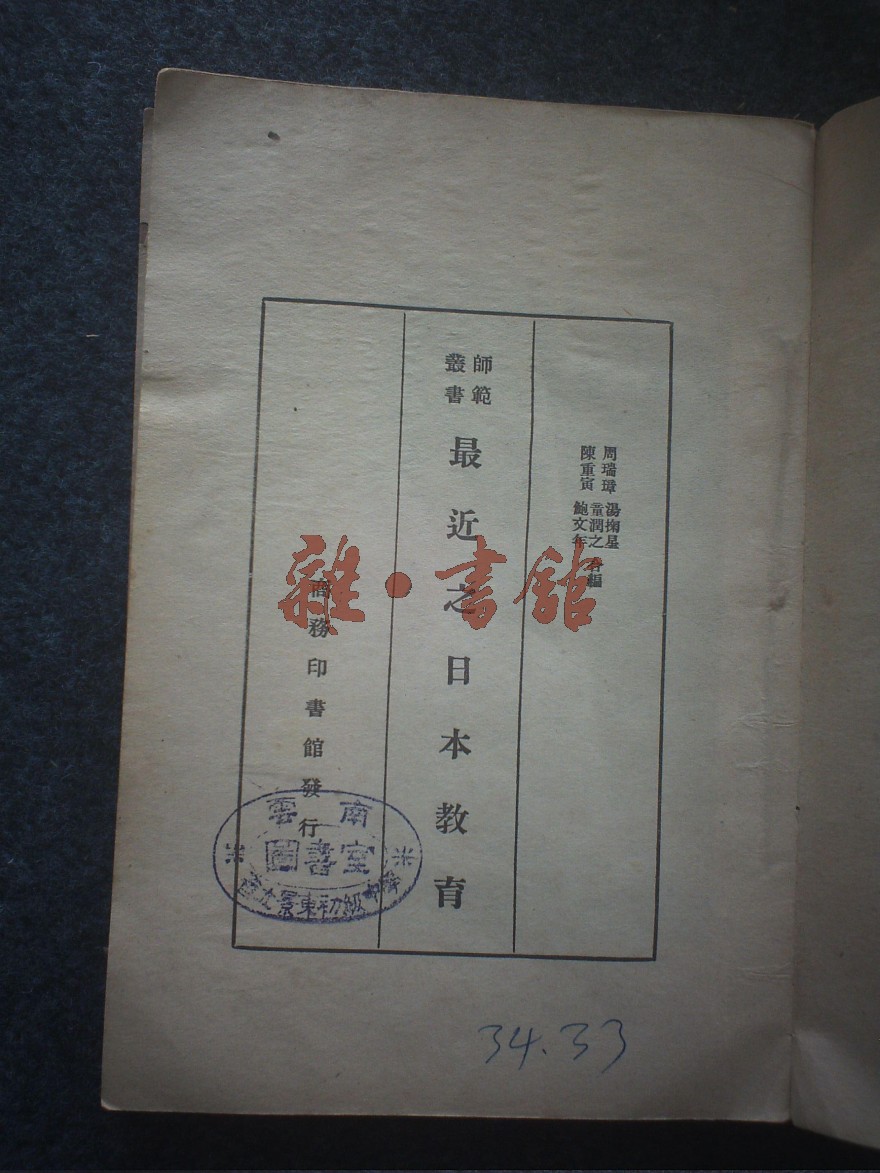 周瑞璋 湯掬星
童潤之
陳重寅 鮑文年
合編
師範
叢書
最近之日本教育
商務印書館發行
雜·書館
雲南
圖書室
景東初級中
34.33